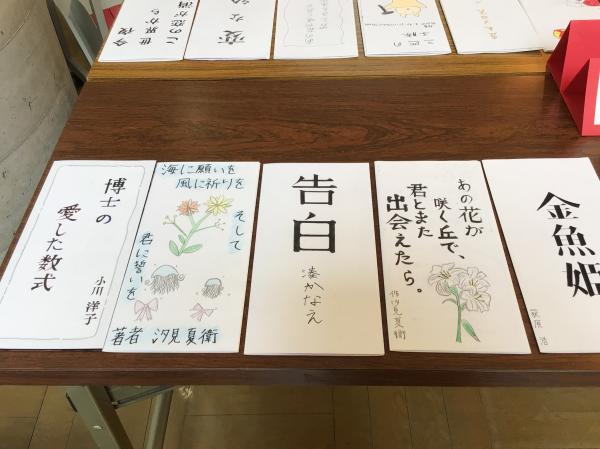 今夜
世界から
この恋が消
変な
博士の
愛した数式
小川 洋子
海に願いを
風に祈りを
そして
君に誓いを
著者 汐見夏衛
告白
湊かなえ
あの花が
咲く丘で、
君とまた
出会えたら。
作 汐見夏衛
金魚姫
荻原 浩